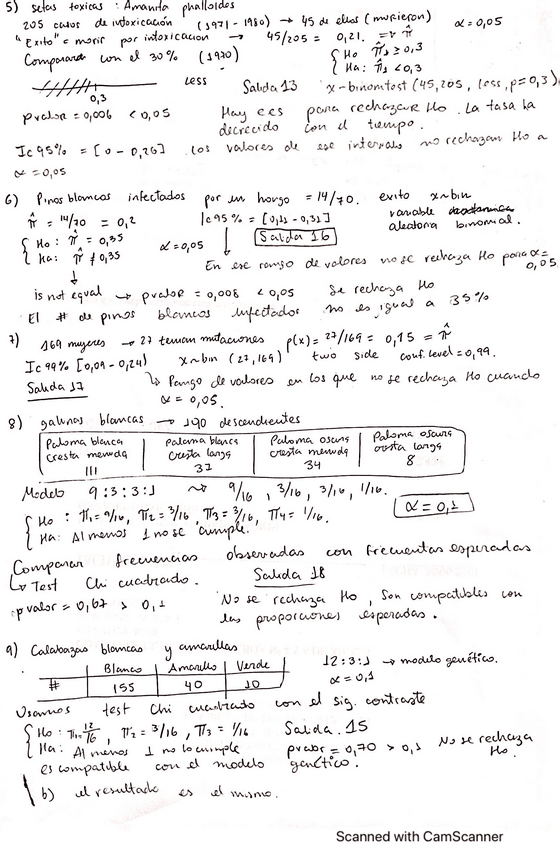 5) setas toxicas : Amanita phalloides
205 casos de intoxicación (1971 - 1980) → 45 de ellos (murieron) α = 0,05
"Exito" = morir por intoxicacion → 45/205 = 0,21. = π̂
Comparando con el 30% (1970) { Ho π̂₁ ≥ 0,3
Ha: π̂₁ < 0,3
0,3 Less Salida 13 x-binomtest (45,205, less, p=0,3)
pvalor = 0,006 < 0,05 Hay ees para rechazar Ho. La tasa ha
decrecido con el tiempo.
Ic 95% = [0 - 0,26] Los valores de ese intervalo no rechazan Ho a
α = 0,05
6) Pinos blancos infectados por un hongo = 14/70. exito x~bin
π̂ = 14/70 = 0,2 Ic 95% = [0,11 - 0,31] variable
aleatoria binomial.
{ Ho: π̂ = 0,35
Ha: π̂ ≠ 0,35 α = 0,05 Salida 16
En ese rango de valores no se rechaza Ho para α = 0,05
is not equal → pvalor = 0,008 < 0,05 Se rechaza Ho
El # de pinos blancos infectados no es igual a 35%
7) 169 mujeres → 27 tenian mutaciones p(x) = 27/169 = 0,15 = π̂
Ic 99% [0,09 - 0,24) x~bin (27,169) two side conf.level = 0,99.
Salida 17 ↳ Rango de valores en los que no se rechaza Ho cuando
α = 0,05.
8) gallinas blancas → 190 descendientes
Paloma blanca Paloma blanca Paloma oscura Paloma oscura
cresta menuda cresta larga cresta menuda cresta larga
111 37 34 8
Modelo 9:3:3:1 ⇝ 9/16, 3/16, 3/16, 1/16.
{ Ho: π₁ = 9/16, π₂ = 3/16, π₃ = 3/16, π₄ = 1/16. α = 0,1
Ha: Al menos 1 no se cumple.
Comparar frecuencias observadas con frecuentas esperadas
↳ Test Chi cuadrado. Salida 18
pvalor = 0,67 > 0,1 No se rechaza Ho, Son compatibles con
las proporciones esperadas.
9) Calabazas blancas y amarillas
Blanco Amarillo Verde 12:3:1 → modelo genético.
# 155 40 10 α = 0,1
Usamos test Chi cuadrado con el sig. contraste
{ Ho: π₁ = 12/16, π₂ = 3/16, π₃ = 1/16 Salida. 15
Ha: Al menos 1 no lo cumple pvalor = 0,70 > 0,1 No se rechaza Ho.
es compatible con el modelo genético.
b) el resultado es el mismo.
Scanned with CamScanner